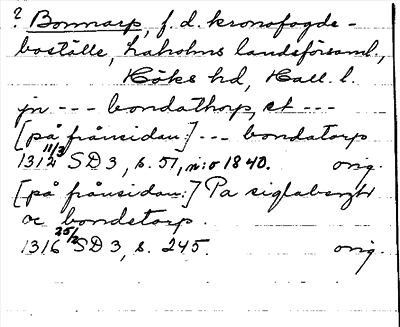 ? Bonnarp, f. d. kronofogde-
boställe, Laholms landsförsaml.,
Höks hd, Hall. l.
jn --- bondathorp, et ---
[på frånsidan:] --- bondatorp
1312 11/3 SD 3, s. 51, n:o 1840. orig.
[på frånsidan:] Pa
oc bondetorp.
1316 25/2 SD 3, s. 245. orig.